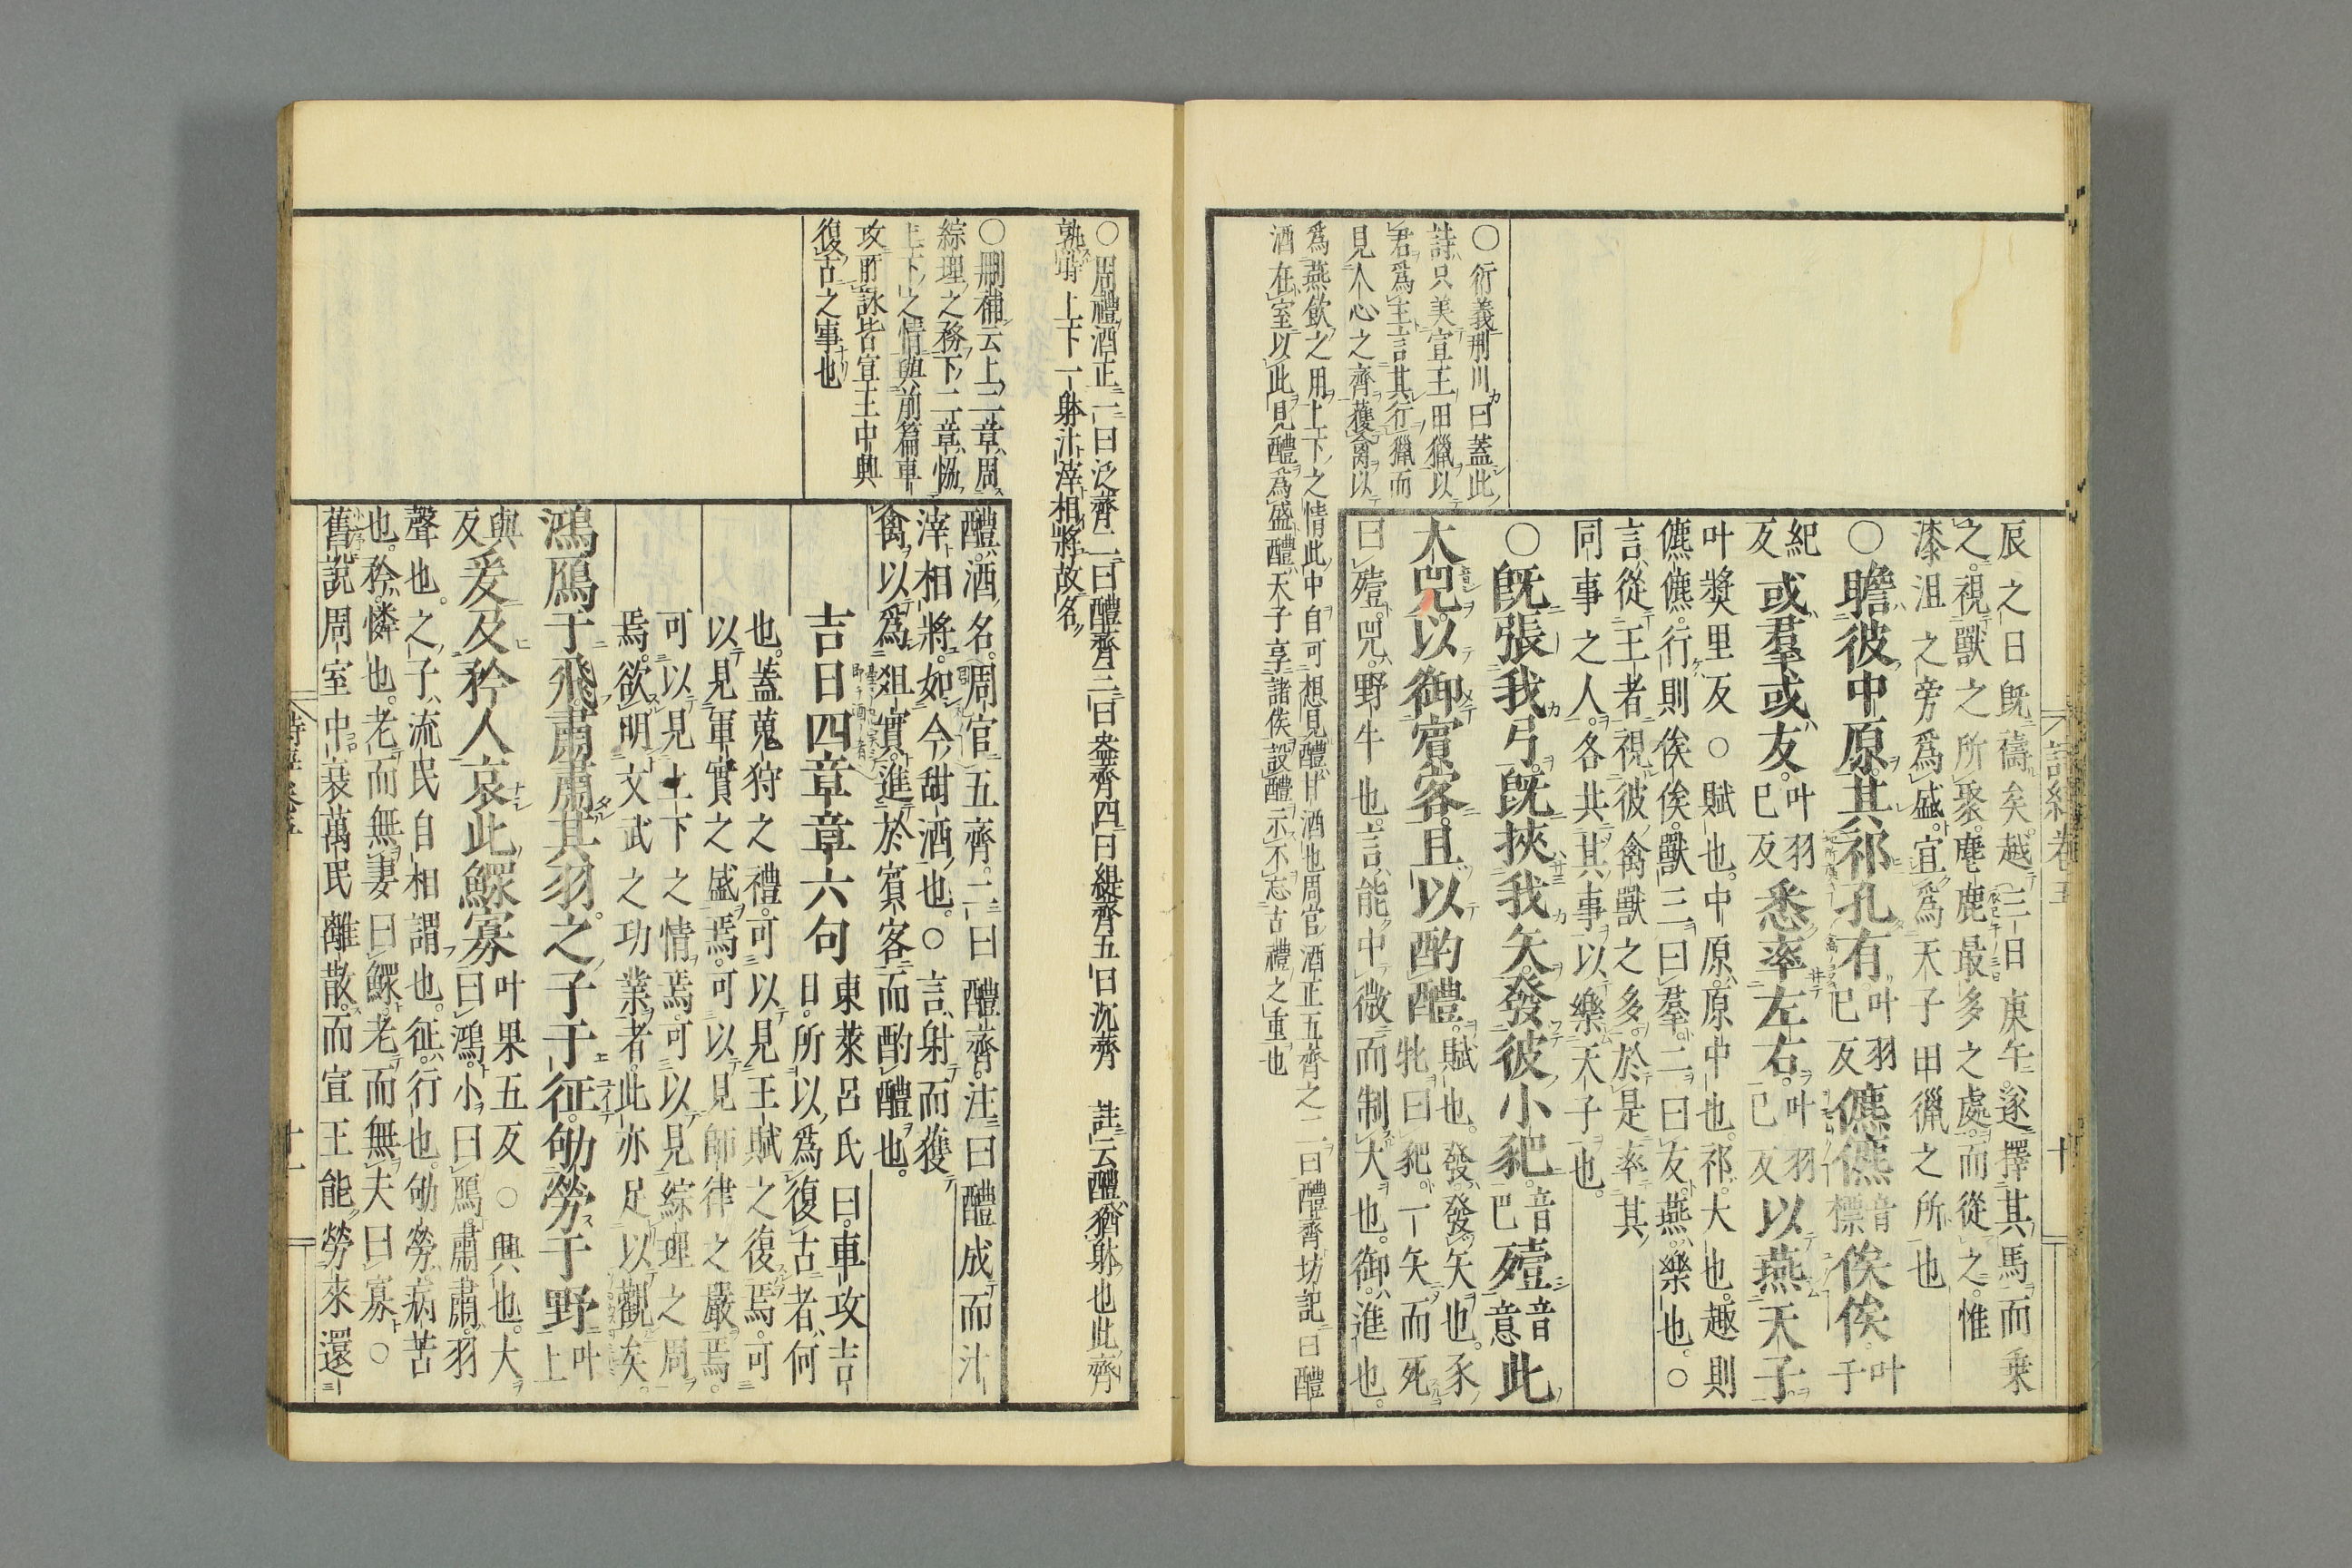 詩經卷五
十
○衍義荆川曰蓋此
詩只美宣王田獵以
君爲主言其行獵而
見人心之齊獲禽以
爲燕飲之用上下之情此中自可想見醴甘酒也周官酒正五齊之二曰醴齊坊記曰醴
酒在室以此見醴爲盛醴天子享諸侯設醴示不忘古禮之重也
辰之日既禱矣越三日庚午遂擇其馬而乗
之視獸之所聚麀鹿最多之處而從之惟
漆沮之旁爲盛宜爲天子田獵之所也
○瞻彼中原其祁孔有叶羽已反儦儦音標俟俟叶于
紀反或羣或友叶羽已反悉率左右叶羽已反以燕天子
叶奬里反○賦也中原原中也祁大也趣則
儦儦行則俟俟獸三曰羣二曰友燕樂也○
言從王者視彼禽獸之多於是率其
同事之人各共其事以樂天子也
○既張我弓既挾我矢發彼小豝音巴殪音意此
大兕以御賓客且以酌醴賦也發發矢也豕牝曰豝一矢而死
曰殪兕野牛也言能中微而制大也御進也
○周禮酒正一曰泛齊二曰醴齊三曰盎齊四曰緹齊五曰沉齊　註云醴猶躰也此齊
孰時上下一躰汁滓相將故名
○刪補云上二章周
綜理之務下二章恊
上下之情與前篇車
攻所詠皆宣王中興
復古之事也
醴酒名周官五齊二曰醴齊注曰醴成而汁
滓相將如今甜酒也○言射而獲
禽以爲俎實進於賓客而酌醴也
吉日四章章六句東萊呂氏曰車攻吉
日所以爲復古者何
也蓋蒐狩之禮可以見王賦之復焉可
以見軍實之盛焉可以見師律之嚴焉
可以見上下之情焉可以見綜理之周
焉欲明文武之功業者此亦足以觀矣
鴻鴈于飛肅肅其羽之子于征劬勞于野叶上
與反爰及矜人哀此鰥寡叶果五反○興也大曰鴻小曰鴈肅肅羽
聲也之子流民自相謂也征行也劬勞病苦
也矜憐也老而無妻曰鰥老而無夫曰寡○
舊說周室中衰萬民離散而宣王能勞來還
十一